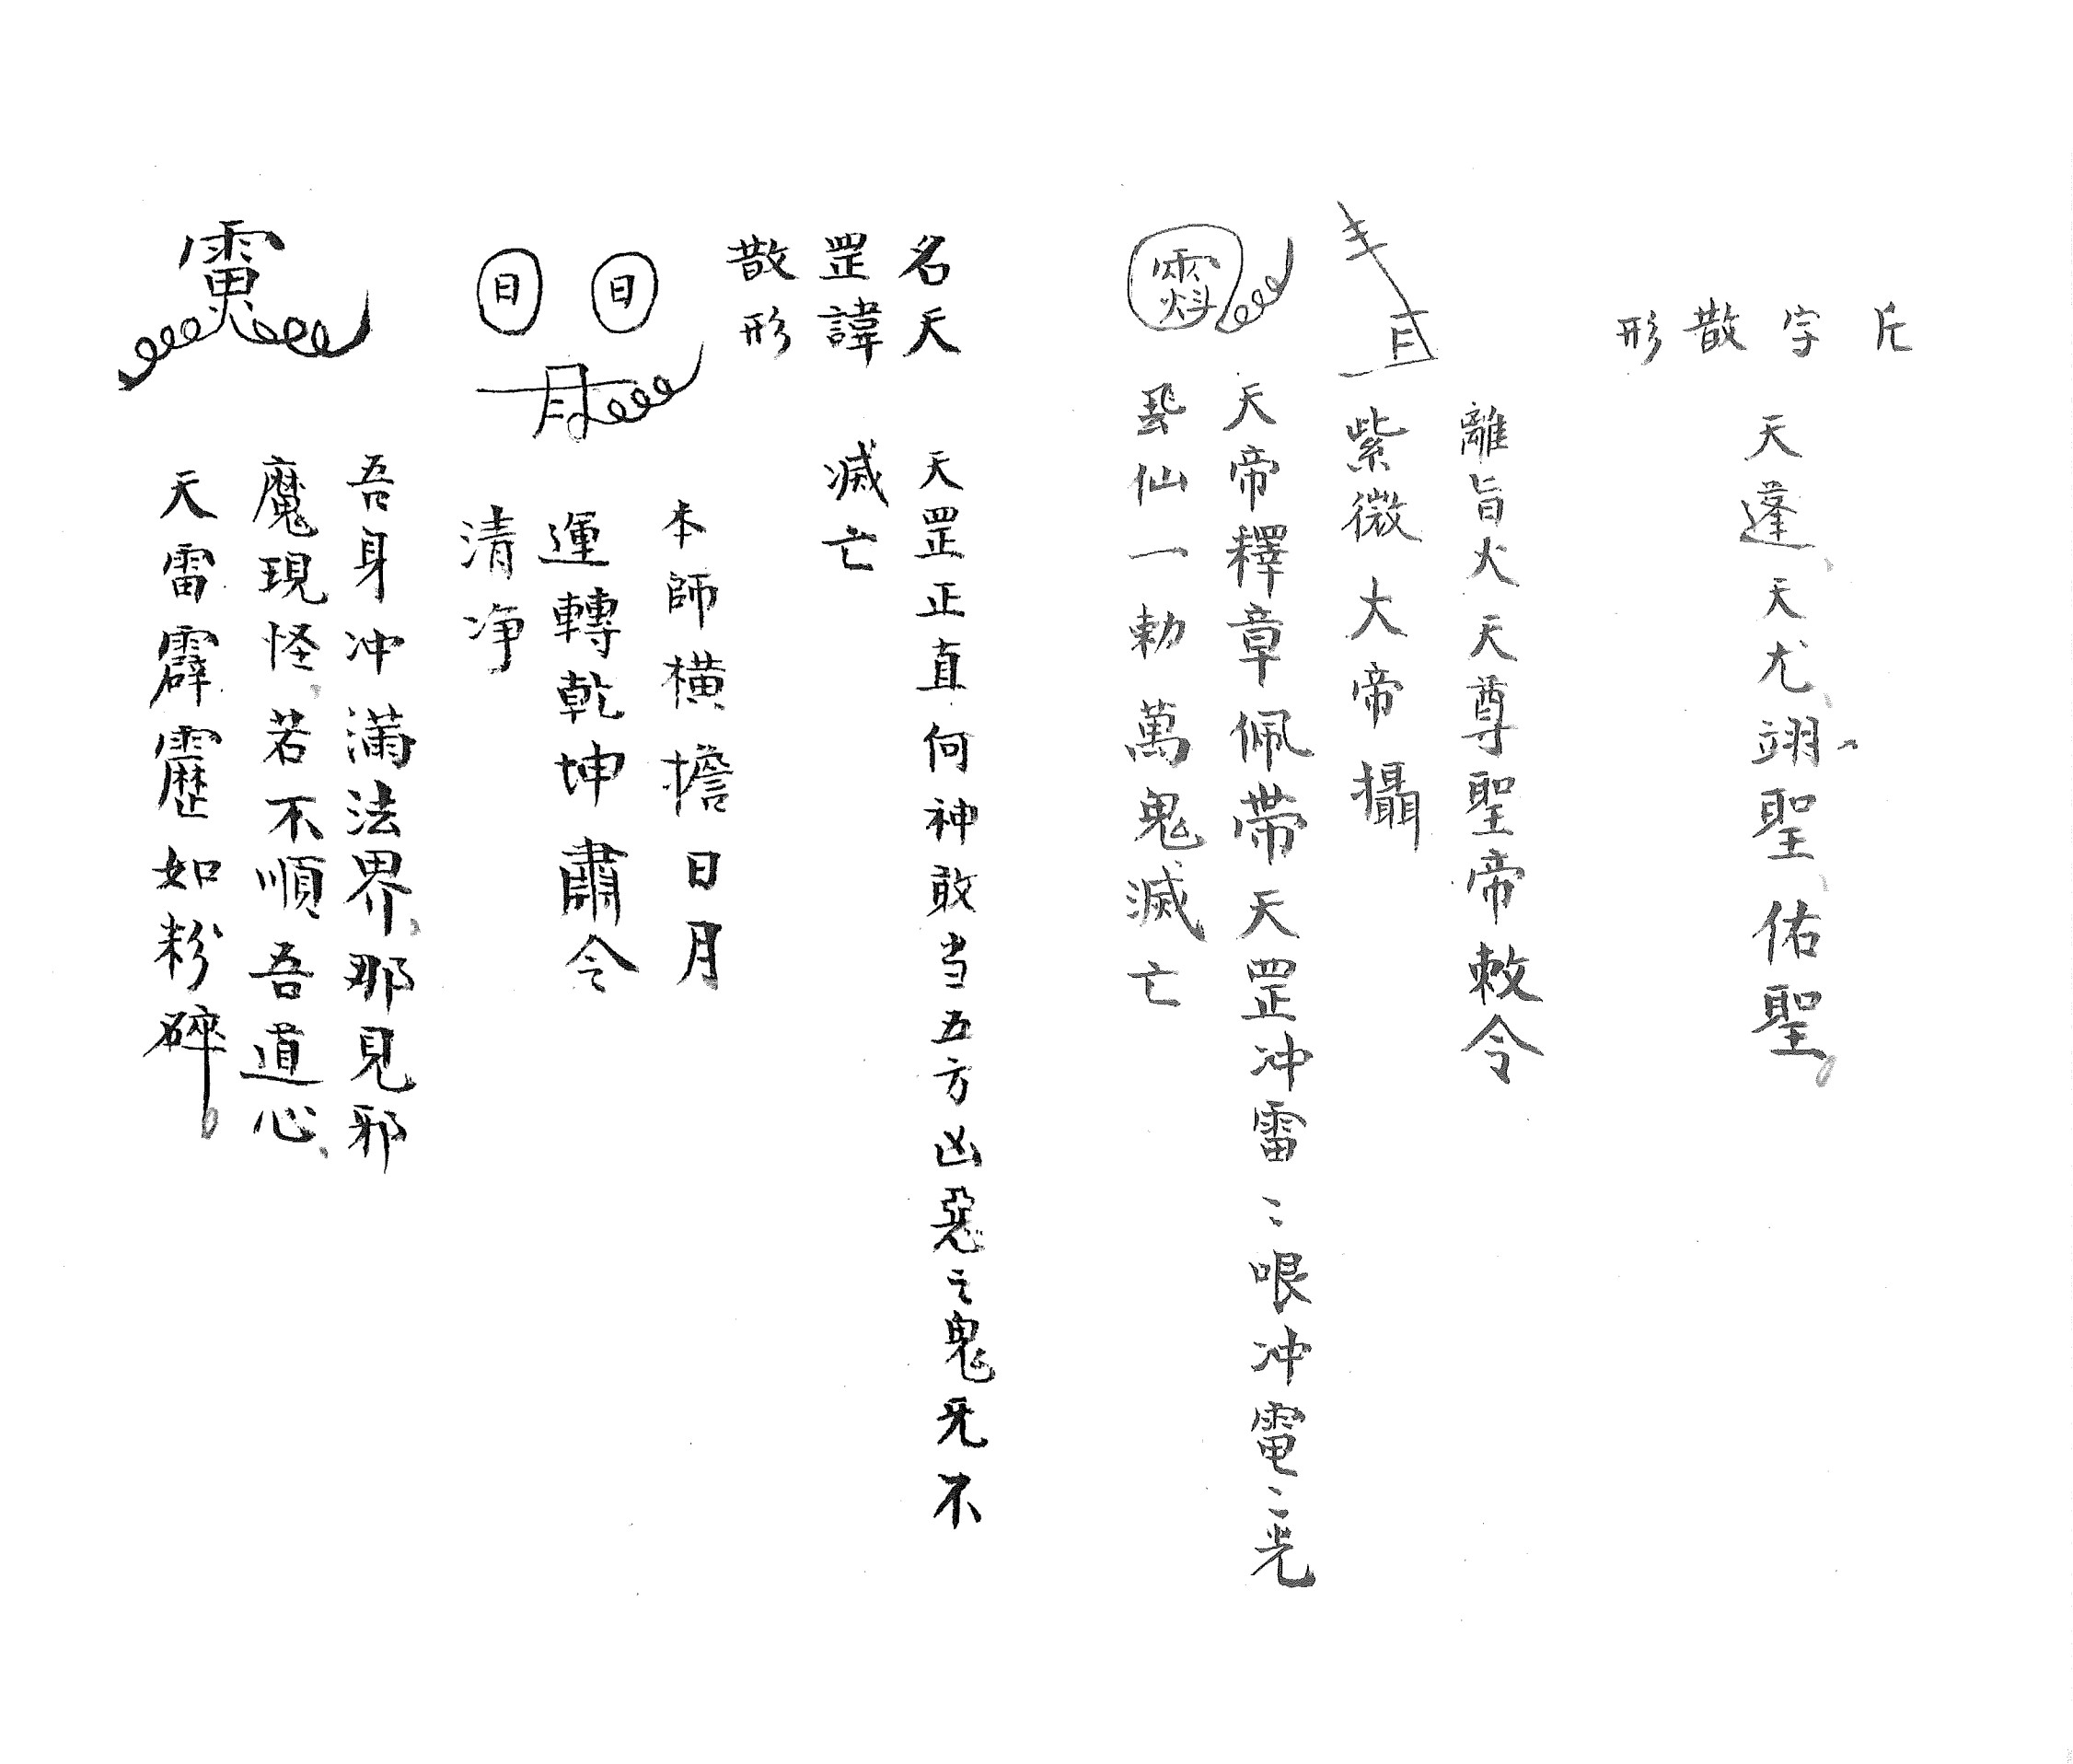 斤
字
散
形
天蓬、天尤、翊聖、佑聖。
離旨火天尊聖帝敕令
紫微大帝攝
天帝釋章佩帶天罡冲雷〻哏冲電〻光
仙一勅萬鬼滅亡
名天
罡諱
散形
天罡正直何神敢当五方凶惡之鬼旡不
滅亡
日 日
月
本師橫擔日月
運轉乾坤肅令
清净
吾身冲滿法界、那見邪
魔現怪、若不順吾道心、
天雷霹靂如粉碎。